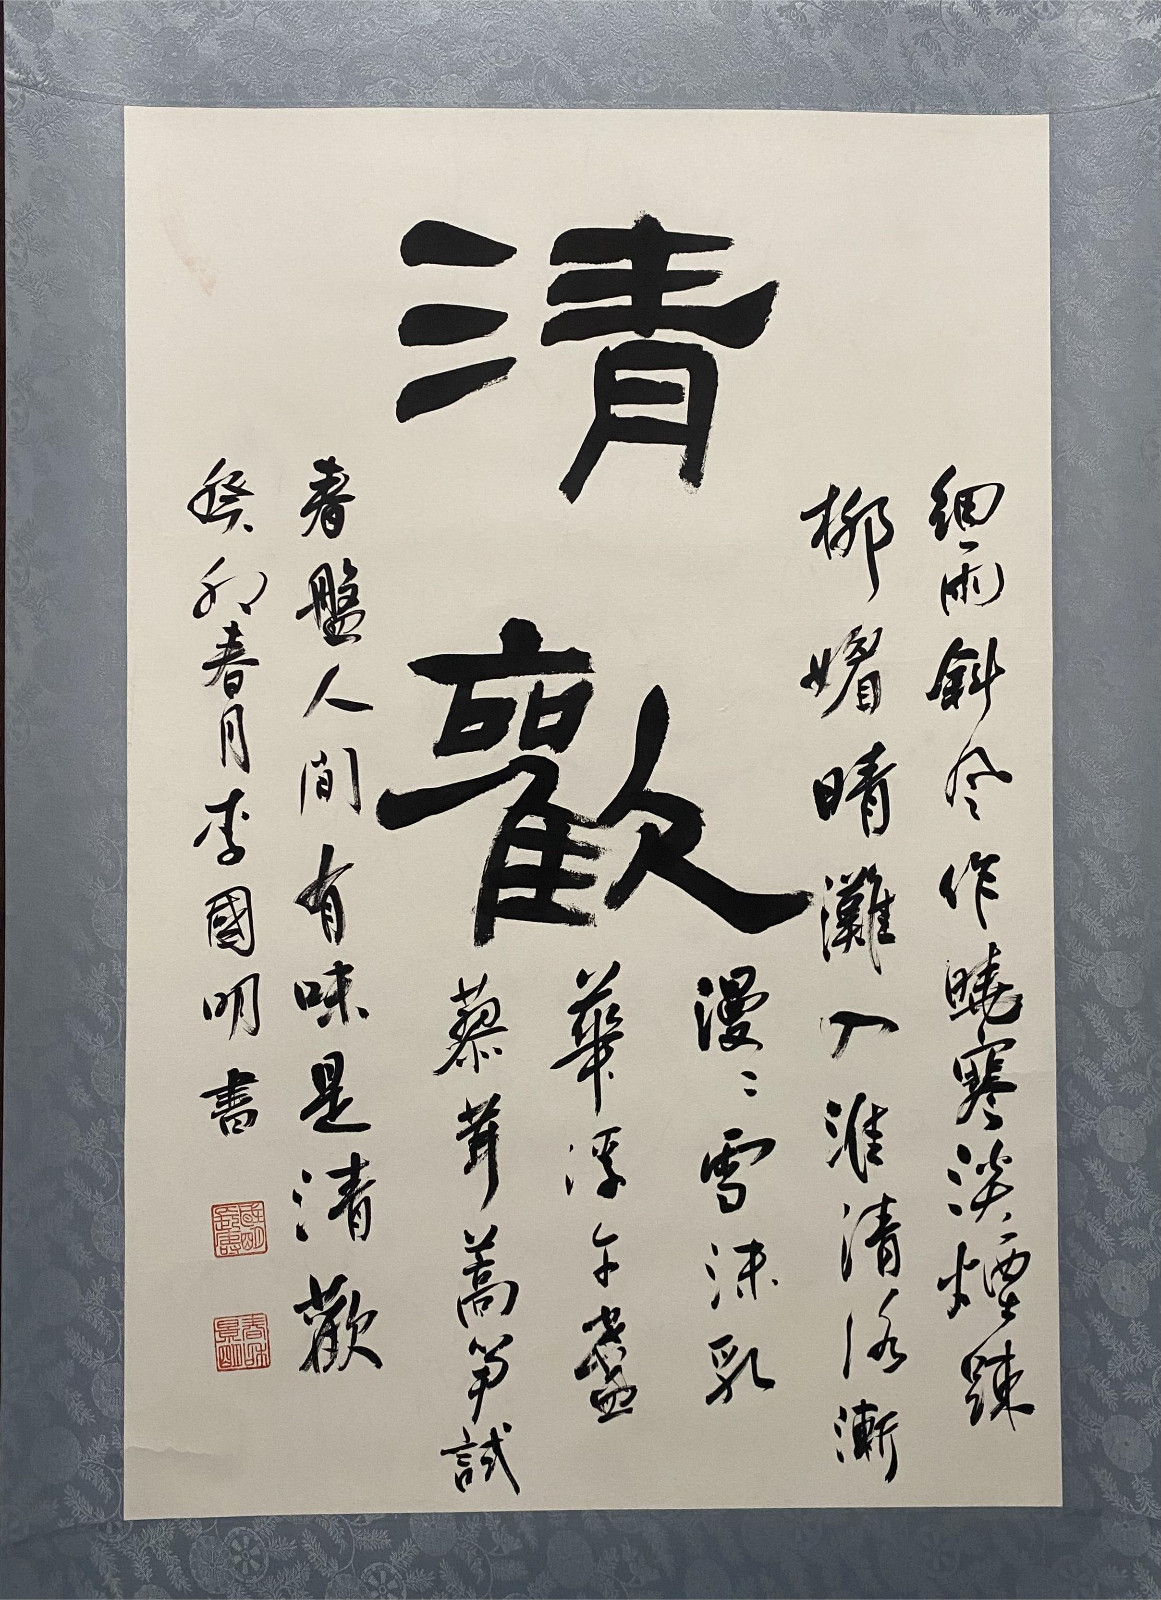 清歡
細雨斜风作曉寒淡煙踈
柳媚晴灘入淮清洛漸
漫〻雪沫乳
華浮午盞
蓼茸蒿笋試
春盤人間有味是清歡
癸卯春月李國明書
春和景明